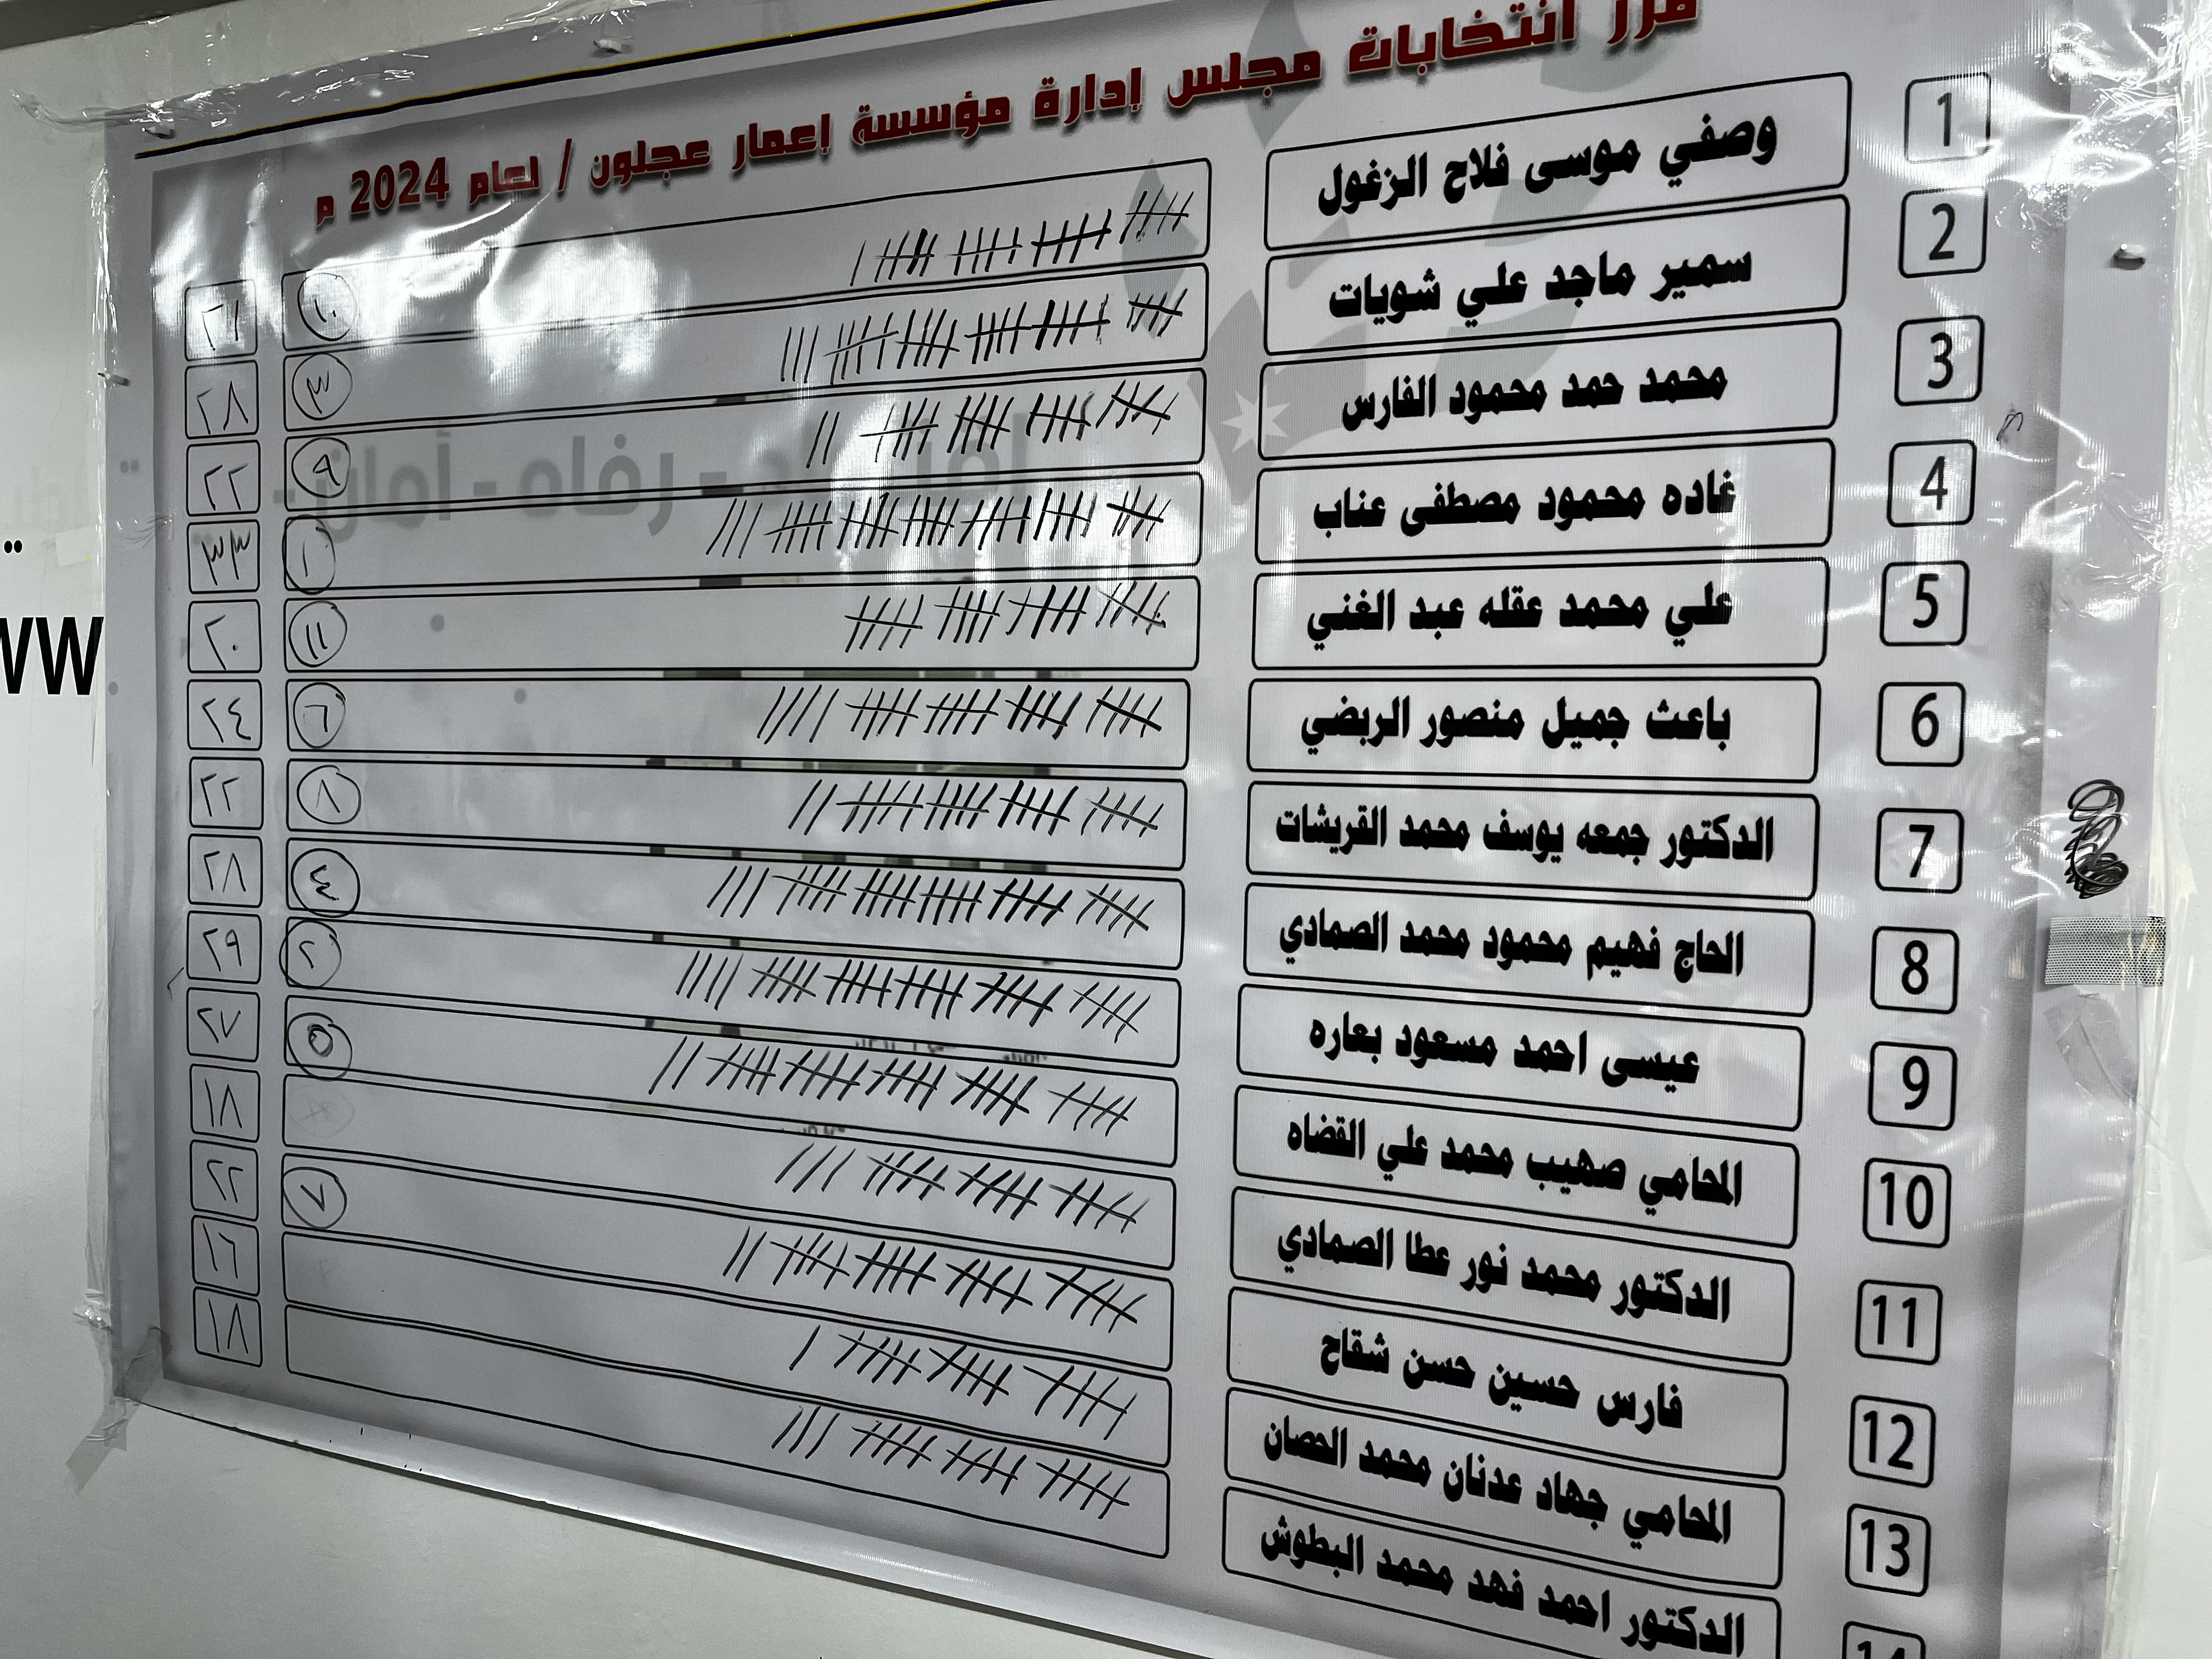 فرز انتخابات مجلس إدارة مؤسسة إعمار عجلون / لعام 2024 م
1 وصفي موسى فلاح الزغول ١٠ ٢١
2 سمير ماجد علي شويات ٣ ٢٨
3 محمد حمد محمود الفارس ٩ ٢٢
4 غاده محمود مصطفى عناب ١ ٣٣
5 علي محمد عقله عبد الغني ١١ ٢٠
6 باعث جميل منصور الربضي ٦ ٢٤
7 الدكتور جمعه يوسف محمد القريشات ٨ ٢٢
8 الحاج فهيم محمود محمد الصمادي ٤ ٢٨
9 عيسى احمد مسعود بعاره ٢ ٢٩
10 المحامي صهيب محمد علي القضاه ٥ ٢٧
11 الدكتور محمد نور عطا الصمادي ١٨
12 فارس حسين حسن شقاح ٧ ٢٢
13 المحامي جهاد عدنان محمد الحصان ١٦
14 الدكتور احمد فهد محمد البطوش ١٨
رفاه - أمان